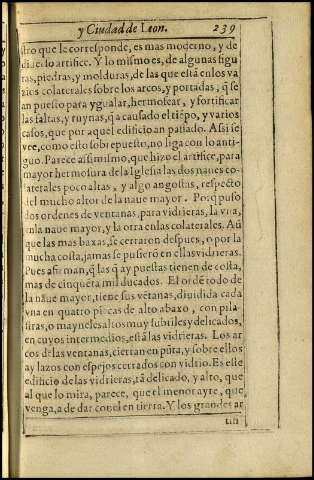 y Ciudad de Leon. 239
stro que le corresponde, es mas moderno, y de
diuerso artifice. Y lo mismo es, de algunas figu
ras, piedras, y molduras, de las que està en los va
zios colaterales sobre los arcos, y portadas, q̃ se
an puesto para ygualar, hermosear, y fortificar
las faltas, y ruynas, q̃ a causado el tiẽpo, y varios
casos, que por aquel edificio an passado. Assi se
vee, como esto sobrepuesto, no liga con lo anti-
guo. Parece assimismo, que hizo el artifice, para
mayor hermosura de la Iglesia las dos naues co-
laterales poco altas, y algo angostas, respecto
del mucho altor de la naue mayor. Porq̃ puso
dos ordenes de ventanas, para vidrieras, la vna,
en la naue mayor, y la otra en las colaterales. Aũ
que las mas baxas, se cerraron despues, o por la
mucha costa, jamas se pusierõ en ellas vidrieras.
Pues afirman, q̃ las q̃ ay puestas tienen de costa,
mas de cinquẽta mil ducados. El ordẽ todo de
la naue mayor, tiene sus vẽtanas, diuidida cada
vna en quatro pieças de alto abaxo, con pila-
stras, o mayneles altos muy subtiles y delicados,
en cuyos intermedios, està las vidrieras. Los ar
cos de las ventanas, cierran en pũta, y sobre ellos
ay lazos con espejos cerrados con vidrio. Es este
edificio de las vidrieras, tã delicado, y alto, que
al que lo mira, parece, que el menor ayre, que
venga, a de dar con el en tierra. Y los grandes ar